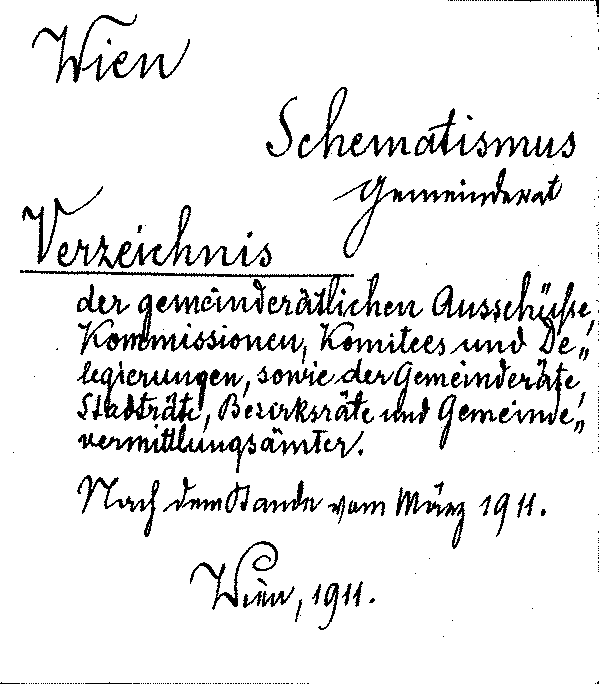 Wien
Schematismus
Gemeinderat
Verzeichnis
der gemeinderätlichen Ausschüsse,
Kommissionen, Komitees und De„
legierungen, sowie der Gemeinderäte,
Stadträte, Bezirksräte und Gemeinde„
vermittlungsämter.
Nach dem Stande vom März 1911.
Wien, 1911.